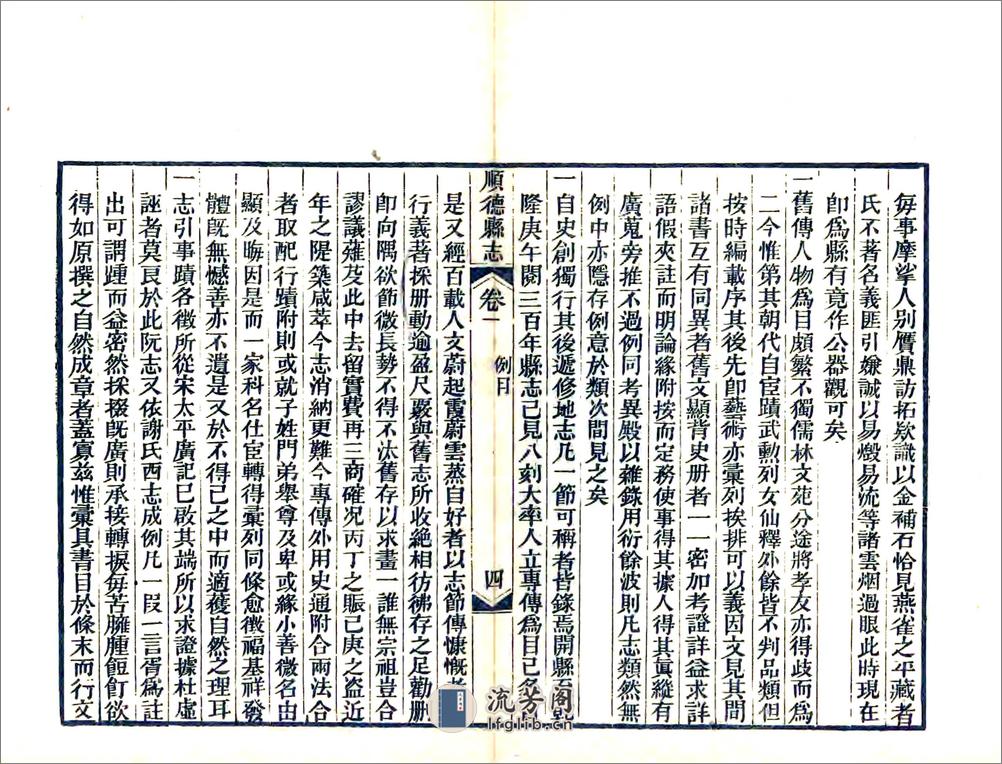 每事摩挲人別贋鼎訪拓欵識以金補石恰見燕雀之平藏者
氏不著名義匪引嫌誠以易燬易流等諸雲烟過眼此時現在
卽爲縣有竟作公器觀可矣
一舊傳人物爲目頗繁不獨儒林文苑分途將孝友亦得歧而爲
二今惟第其朝代自宦蹟武勳列女仙釋外餘皆不判品類但
按時編載序其後先卽藝術亦彙列挨排可以義因文見其間
諸書互有同異者舊文顯背史册者一一密加考證詳益求詳
語假夾註而明論緣附按而定務使事得其據人得其眞縱有
廣蒐旁推不過例同考異殿以雜錄用衍餘波則凡志類然無
例中亦隱存例意於類次間見之矣
一自史創獨行其後遞修地志凡一節可稱者皆錄焉開縣至
隆庚午閱三百年縣志已見八刻大率人立專傳爲目已多
順德縣志
卷一
例目
四
是又經百載人文蔚起霞蔚雲蒸自好者以志節傳慷慨
行義著採册動逾盈尺覈與舊志所收絕相彷彿存之足勸册
卽向隅欲節徵長勢不得不汰舊存以求畫一誰無宗祖豈合
謬議薙芟此中去留實費再三商確况丙丁之賑已庚之盜近
年之隄築咸萃今志消納更難今專傳外用史通附合兩法合
者取配行蹟附則或就子姓門弟舉尊及卑或緣小善微名由
顯及晦因是而一家科名仕宦轉得彙列同條愈徵福基祥發
體旣無憾善亦不遺是又於不得已之中而適獲自然之理耳
一志引事蹟各徵所從宋太平廣記已啟其端所以求證據杜虛
誣者莫良於此阮志又依謝氏西志成例凡一叚一言胥爲註
出可謂踵而益密然採掇旣廣則承接轉捩每苦臃腫餖飣欲
得如原撰之自然成章者蓋寡兹惟彙其書目於條末而行文
流芳阁
lfglib.com